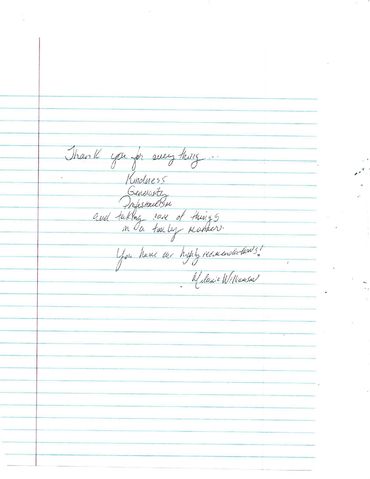 Thank you for everything...
Kindness
Generosity
and taking care of things
in a timely manner.
You have our highly recommendations!